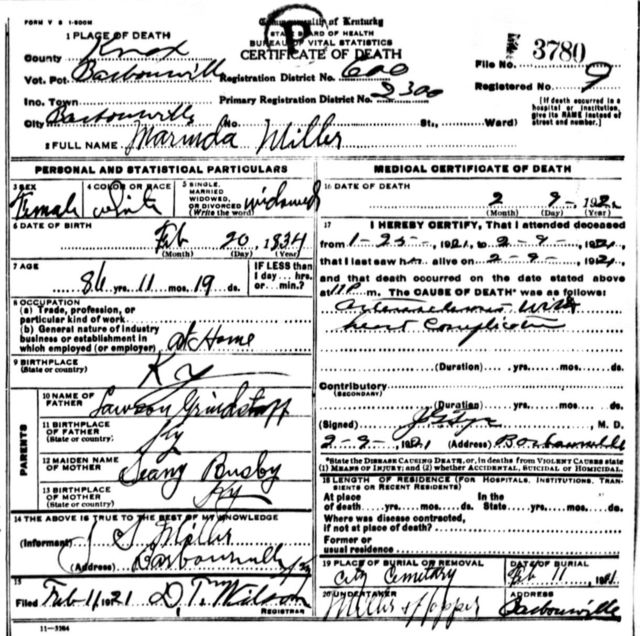 FORM V S 1-500M
Commonwealth of Kentucky
STATE BOARD OF HEALTH
BUREAU OF VITAL STATISTICS
CERTIFICATE OF DEATH
1 PLACE OF DEATH
County Knox
File No. 3780
Vot. Pct. Barbourville Registration District No. 600
Registered No. 9
Inc. Town Primary Registration District No. 2300
[If death occurred in a hospital or institution, give its NAME instead of street and number.]
City Barbourville No. St., Ward)
2 FULL NAME Marinda Miller
PERSONAL AND STATISTICAL PARTICULARS
3 SEX Female
4 COLOR OR RACE white
5 SINGLE, MARRIED WIDOWED, OR DIVORCED (Write the word) widowed
6 DATE OF BIRTH Feb 20, 1834
(Month) (Day) (Year)
7 AGE 86 yrs. 11 mos. 19 ds.
IF LESS than I day... hrs. or min.?
8 OCCUPATION
(a) Trade, profession, or particular kind of work
(b) General nature of industry business or establishment in which employed (or employer) at Home
9 BIRTHPLACE (State or country) Ky
PARENTS
10 NAME OF FATHER Lawson Grindstaff
11 BIRTHPLACE OF FATHER (State or country) Ky
12 MAIDEN NAME OF MOTHER Busby
13 BIRTHPLACE OF MOTHER (State or country) Ky
14 THE ABOVE IS TRUE TO THE BEST OF MY KNOWLEDGE
(Informant) J S Miller
(Address) Barbourville Ky
15
Filed Feb 11, 1921 D. T. Wilson
REGISTRAR
11-3184
MEDICAL CERTIFICATE OF DEATH
16 DATE OF DEATH
2 9 - 1921
(Month) (Day) (Year)
17 I HEREBY CERTIFY, That I attended deceased
from 1-25-, 1921, to 2-9-, 1921
that I last saw h alive on 2-9-, 1921
and that death occurred on the date stated above
at m. The CAUSE OF DEATH* was as follows:
with
heart Complication
(Duration) yrs. mos. ds.
Contributory
(SECONDARY)
(Duration) yrs. mos. ds.
(Signed) M. D.
2-9-, 1921 (Address) Barbourville
*State the DISEASE CAUSING DEATH, or, in deaths from VIOLENT CAUSES state (1) MEANS OF INJURY; and (2) whether ACCIDENTAL, SUICIDAL OR HOMICIDAL.
18 LENGTH OF RESIDENCE (FOR HOSPITALS, INSTITUTIONS, TRANSIENTS OR RECENT RESIDENTS)
At place of death yrs. mos. ds. In the State yrs. mos. ds.
Where was disease contracted, if not at place of death?
Former or usual residence
19 PLACE OF BURIAL OR REMOVAL City Cemetary
DATE OF BURIAL Feb 11, 1921
20 UNDERTAKER Miller & Hopper
ADDRESS Barbourville